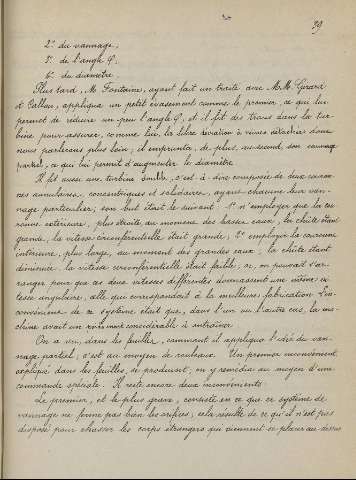 39
2° du vannage,
3° de l'angle φ,
6° du diamètre.
Plus tard, M. Fontaine, ayant fait un traité avec M.M. Girard
et Callon, appliqua un petit évasement comme le premier, ce qui lui
permet de réduire un peu l'angle φ, et il fit des trous dans la tur-
bine pour assurer, comme lui, la libre déviation à veines détachées dont
nous parlerons plus loin; il emprunta, de plus, au second, son vannage
partiel, ce qui lui permit d'augmenter le diamètre.
Il fit aussi une turbine double, c'est-à-dire composée de deux couron-
nes annulaires, concentriques et solidaires, ayant chacune leur van-
nage particulier; son but était le suivant: 1° n'employer que la cou-
ronne extérieure, plus étroite au moment des basses eaux, la chûte étant
grande, la vitesse circonférentielle était grande; 2° employer la couronne
intérieure, plus large, au moment des grandes eaux; la chûte étant
diminuée, la vitesse circonférentielle était faible; or, on pouvait s'ar-
ranger pour que ces deux vitesses différentes donnassent une même vi-
tesse angulaire, celle qui correspondait à la meilleure fabrication. L'in-
convénient de ce système était que, dans l'un ou l'autre cas, la ma-
chine avait un poids considérable à entraîner.
On a vu, dans les feuilles, comment il appliqua l'idée du van-
nage partiel; c'est au moyen de rouleaux. Un premier inconvénient,
expliqué dans les feuilles, se produisit; on y remédia au moyen d'une
commande spéciale. Il reste encore deux inconvénients:
Le premier, et le plus grave, consiste en ce que ce système de
vannage ne ferme pas bien les orifices; cela résulte de ce qu'il n'est pas
disposé pour chasser les corps étrangers qui viennent se placer au-dessus